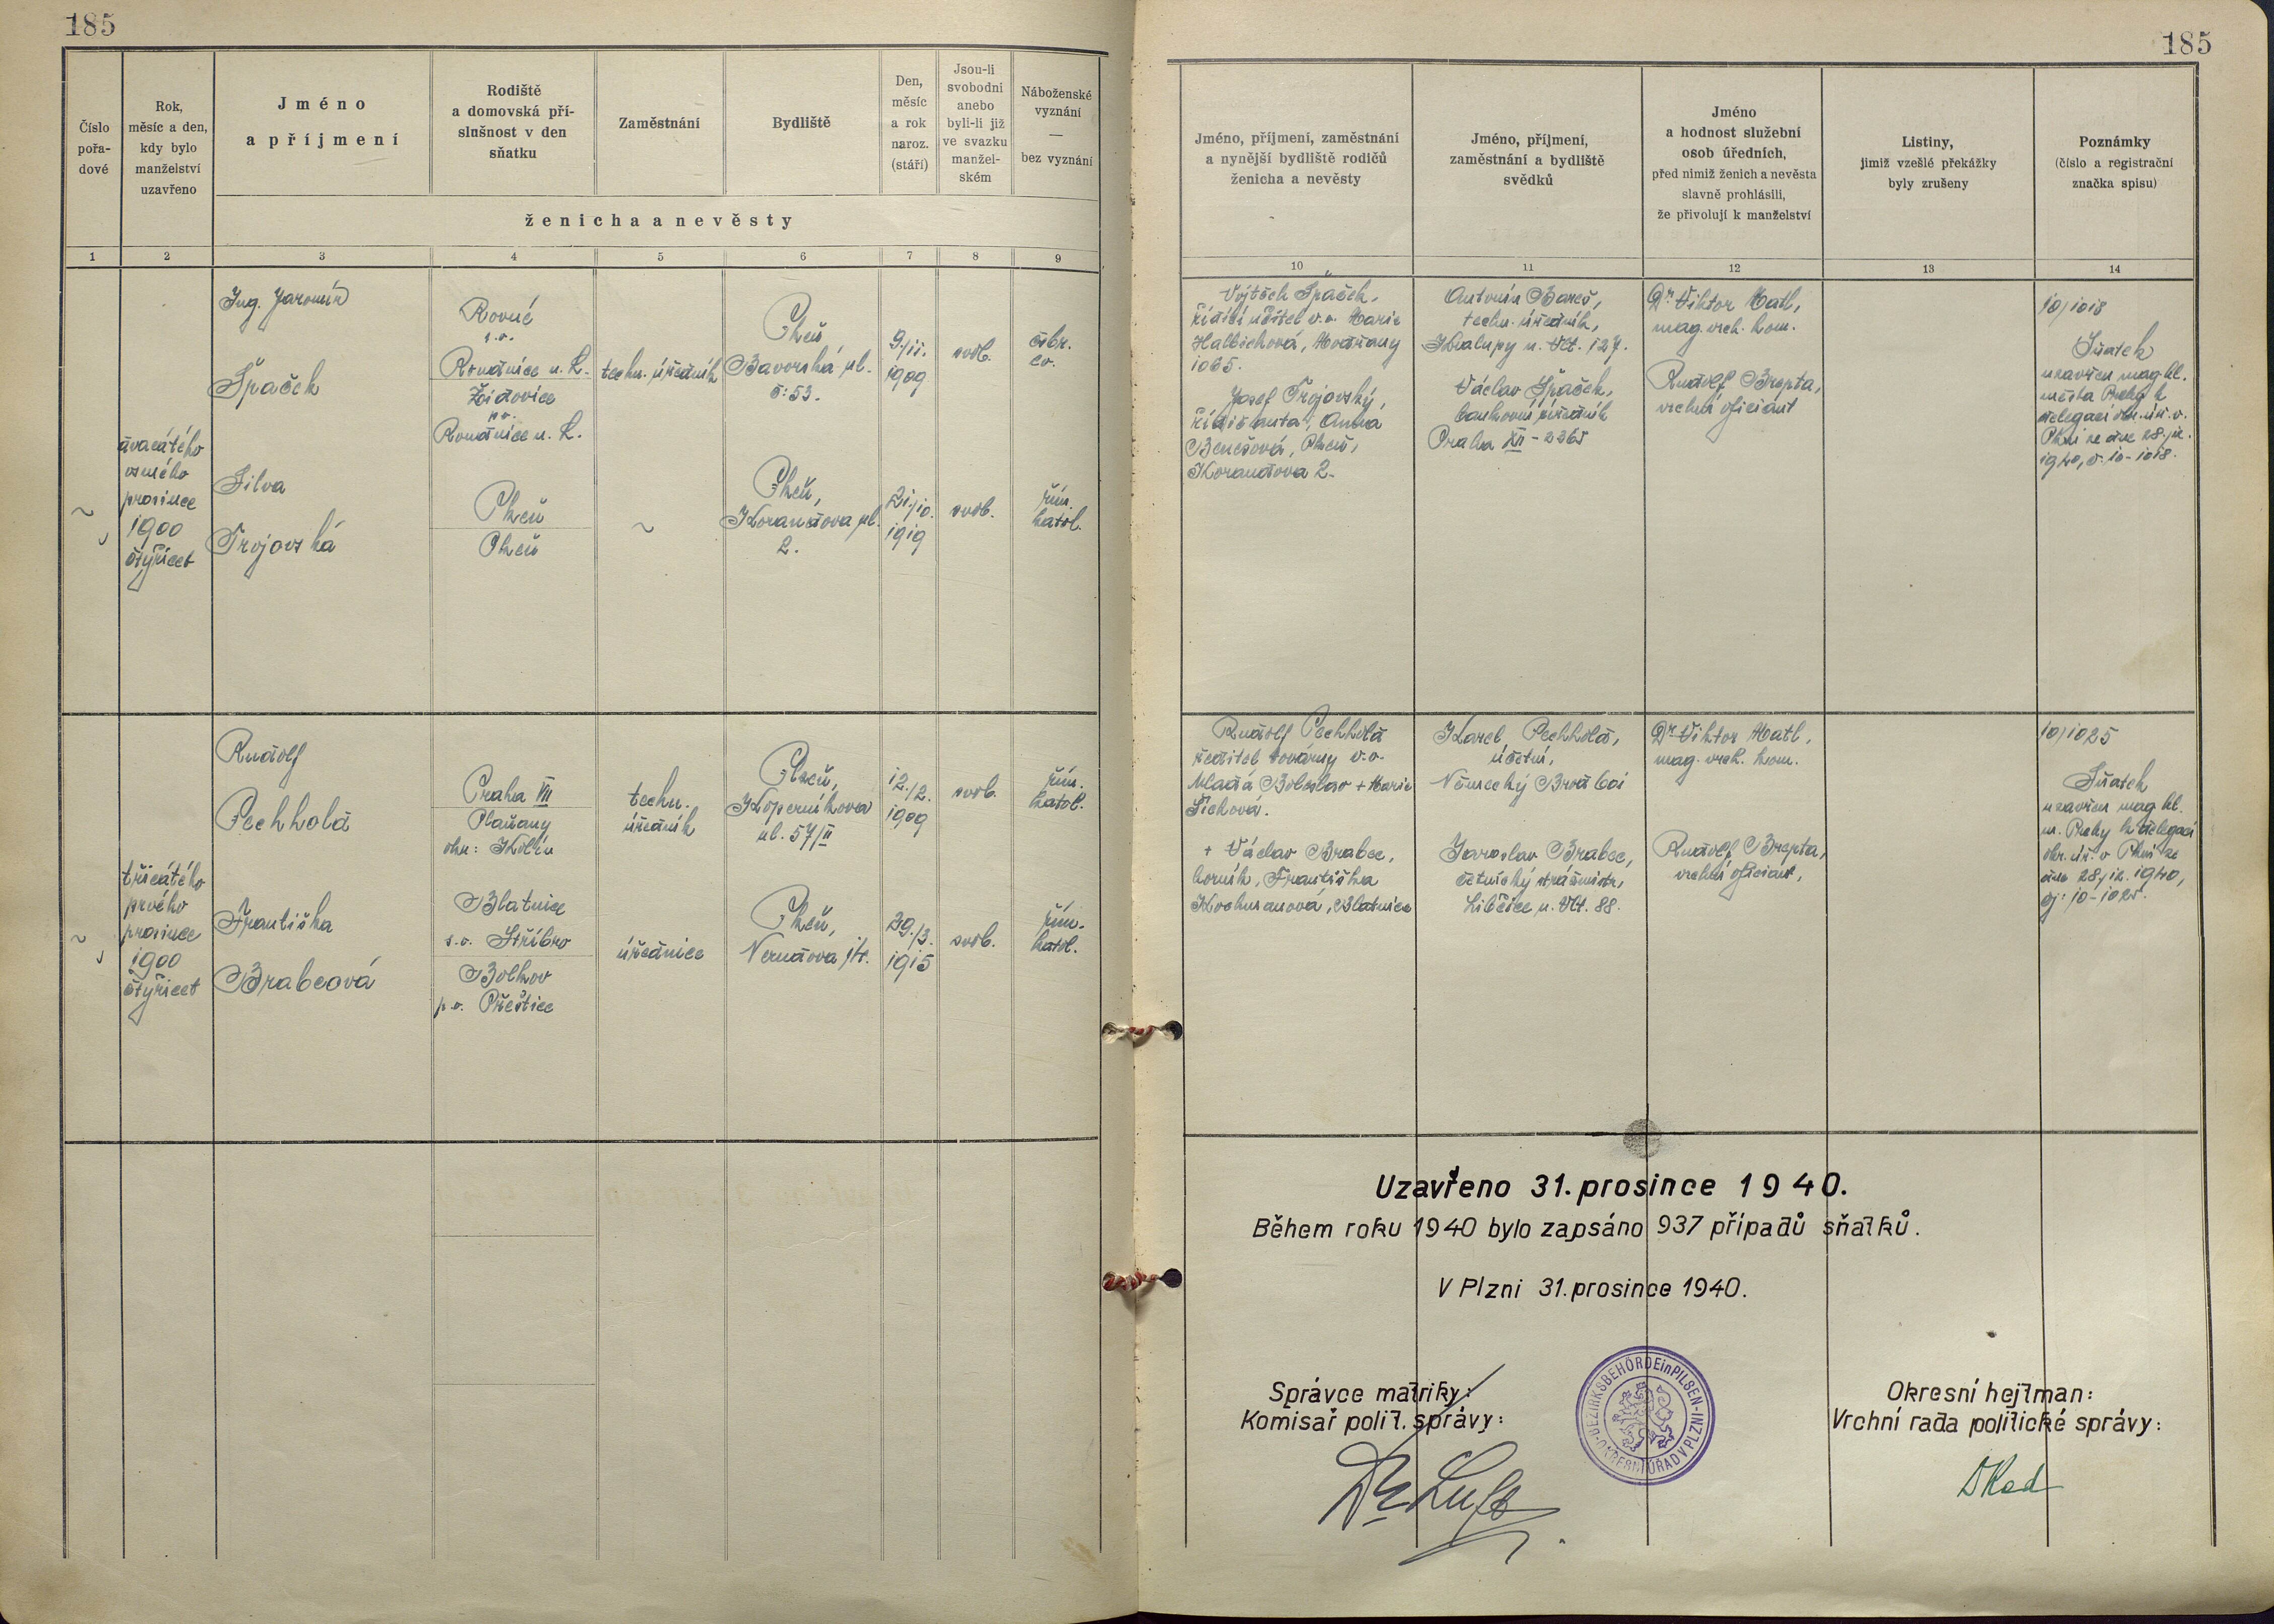 185
185
Číslo
pořa-
dové
Rok,
měsíc a den,
kdy bylo
manželství
uzavřeno
Jméno
a příjmení
Rodiště
a domovská pří-
slušnost v den
sňatku
Zaměstnání
Bydliště
Den,
měsíc
a rok
naroz.
(stáří)
Jsou-li
svobodni
anebo
byli-li již
ve svazku
manžel-
ském
Náboženské
vyznání
—
bez vyznání
ženicha a nevěsty
1 2 3 4 5 6 7 8 9
Jméno, příjmení, zaměstnání
a nynější bydliště rodičů
ženicha a nevěsty
Jméno, příjmení,
zaměstnání a bydliště
svědků
Jméno
a hodnost služební
osob úředních,
před nimiž ženich a nevěsta
slavně prohlásili,
že přivolují k manželství
Listiny,
jimiž vzešlé překážky
byly zrušeny
Poznámky
(číslo a registrační
značka spisu)
10 11 12 13 14
dvacátého
osmého
prosince
1900
čtyřicet
Ing. Jaromír
Špaček
Rovné
s.o.
Roudnice n. L.
Židovice
p.o.
Roudnice n. L.
techn. úředník
Plzeň
Bavorská ul.
č: 53.
9./11.
1909
svob.
čsbr.
ev.
Silva
Trojovská
Plzeň
Plzeň
~
Plzeň,
Korandova ul.
2.
21./10.
1919
svob.
řím.
katol.
Vojtěch Špaček,
řídící učitel v.v. Marie
Halbichová, Modřany
1065.
Josef Trojovský,
řidič auta, Anna
Benešová, Plzeň,
Korandova 2.
Antonín Bareš,
techn. úředník,
Kralupy n. Vlt. 127.
Václav Špaček,
bankovní úředník
Praha XII - 2265
Dr. Viktor Matl,
mag. vrch. kom.
Rudolf Brepta,
vrchní oficiant
10/1018
Sňatek
uzavřen mag. hl.
města Prahy k
delegaci okr. úř. v
Plzni ze dne 28./12.
1940, č. 10-1018.
třicátého
prvého
prosince
1900
čtyřicet
Rudolf
Pechhold
Praha VII
Plaňany
okr: Kolín
techn.
úředník
Plzeň,
Koperníkova
ul. 57/II
12./2.
1909
svob.
řím.
katol.
Františka
Brabcová
Blatnice
s.o. Stříbro
Bolkov
p.o. Přeštice
úřednice
Plzeň,
Nerudova
29./3.
1915
svob.
řím.
katol.
Rudolf Pechhold
ředitel továrny v.v.
Mladá Boleslav + Marie
Šichová.
+ Václav Brabec,
horník, Františka
Kochmanová, Blatnice
Karel Pechhold,
účetní,
Německý Brod
Jaroslav Brabec,
četnický strážmistr,
Libčice n. Vlt. 88.
Dr. Viktor Matl,
mag. vrch. kom.
Rudolf Brepta,
vrchní oficiant,
10/1025
Sňatek
uzavřen mag hl.
m. Prahy k delegaci
okr. úř. v Plzni ze
dne 28./12. 1940,
čj: 10-1025.
Uzavřeno 31. prosince 1940.
Během roku 1940 bylo zapsáno 937 případů sňatků.
V Plzni 31. prosince 1940.
Správce matriky:
Komisař polit. správy:
BEZIRKSBEHÖRDE in PILSEN - OKRESNÍ ÚŘAD V PLZNI
Okresní hejtman:
Vrchní rada politické správy: